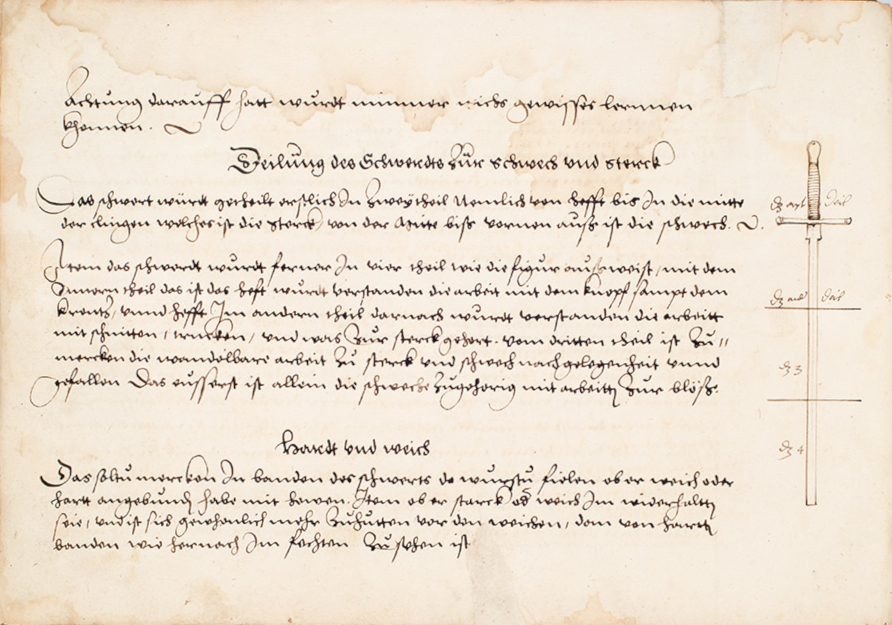 Achtung darauff hatt wurdt nimmer nichs gewisses lernnen
khonnen.
Teilung des Schwerdts zur schwech und sterck
Das schwert würdt getheilt erstlich In zwey theil Nemlich von hefft bis In die mitte
der clingen welches ist die sterck / von der Mitte biss vornen auss ist die schwech.
Item das schwerdt wurdt ferner In vier theil wie die figur ausweist / mit dem
Innern theil das ist das heft wurdt verstanden die arbeit mit dem knopf sampt dem
kreutz / unnd hefft Im andern theil darnach wurdt verstanden die arbeitt
mit schnitten / trucken / und was zur sterck gehort. vom dritten theil ist zu=
mercken die wandelbare arbeit zu sterck und schwech nach gelegenheit unnd
gefallen Das eusserst ist allein die schweche zugehorig mit arbeitten zur blöss.
Hardt und weich
Das soltu mercken In banden des schwerts da wurstu fielen ob er weich oder
hartt angebunden habe mit hewen. Item ob er starck od weich Im widerhaltten
seie / und ist sich gewohnlich mehr zuhutten vor den weichen / dem von hartten
banden wie hernach Im fechten zu sehen ist
deil
deil
dz 3
dz 4